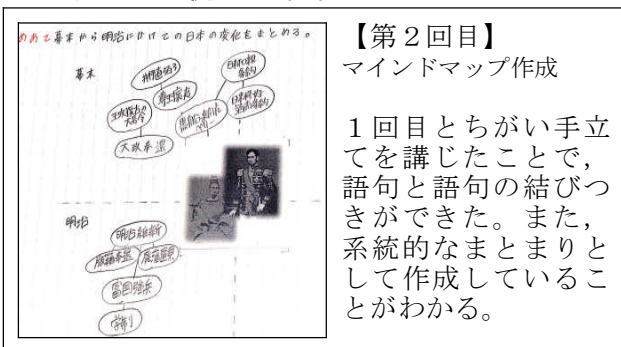 めあて幕末から明治にかけての日本の変化をまとめる。
幕末
日米和親
条約
王政復古の
大号令
大政奉還
明治
明治維新
版籍奉還
廃藩置県
富国強兵
学制
【第２回目】
マインドマップ作成
１回目とちがい手立
てを講じたことで，
語句と語句の結びつ
きができた。また，
系統的なまとまりと
して作成しているこ
とがわかる。